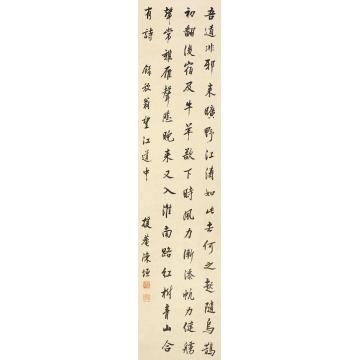 吾道非邪來曠野江濤如此去何之起隨烏鵲
初翻後宿及牛羊欲下時風力漸添帆力健艣
聲常雜雁聲悲晚來又入淮南路紅樹青山合
有詩 錄放翁望江道中 援菴陳垣